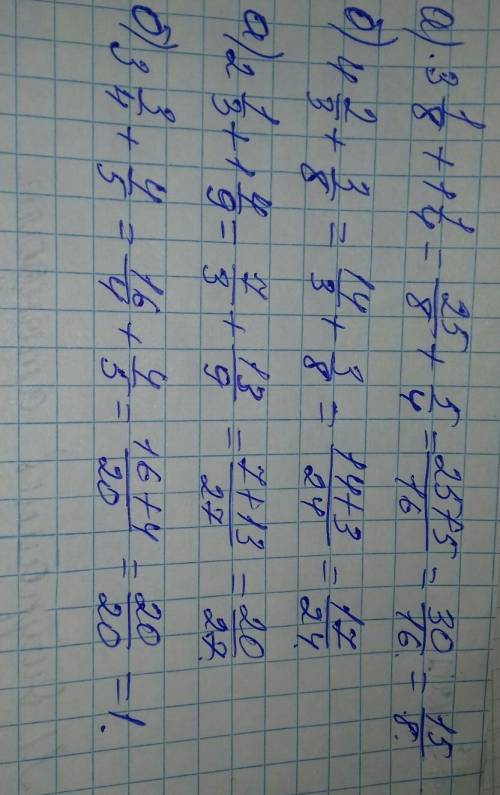 а). 3 1/8 + 1 1/4 = 25/8 + 5/4 = 25+5/16 = 30/16 = 15/8.
б) 4 2/3 + 3/8 = 14/3 + 3/8 = 14+3/24 = 17/24.
а) 2 1/3 + 1 4/9 = 7/3 + 13/9 = 7+13/27 = 20/27.
б) 3 3/4 + 4/5 = 16/4 + 4/5 = 16+4/20 = 20/20 = 1.